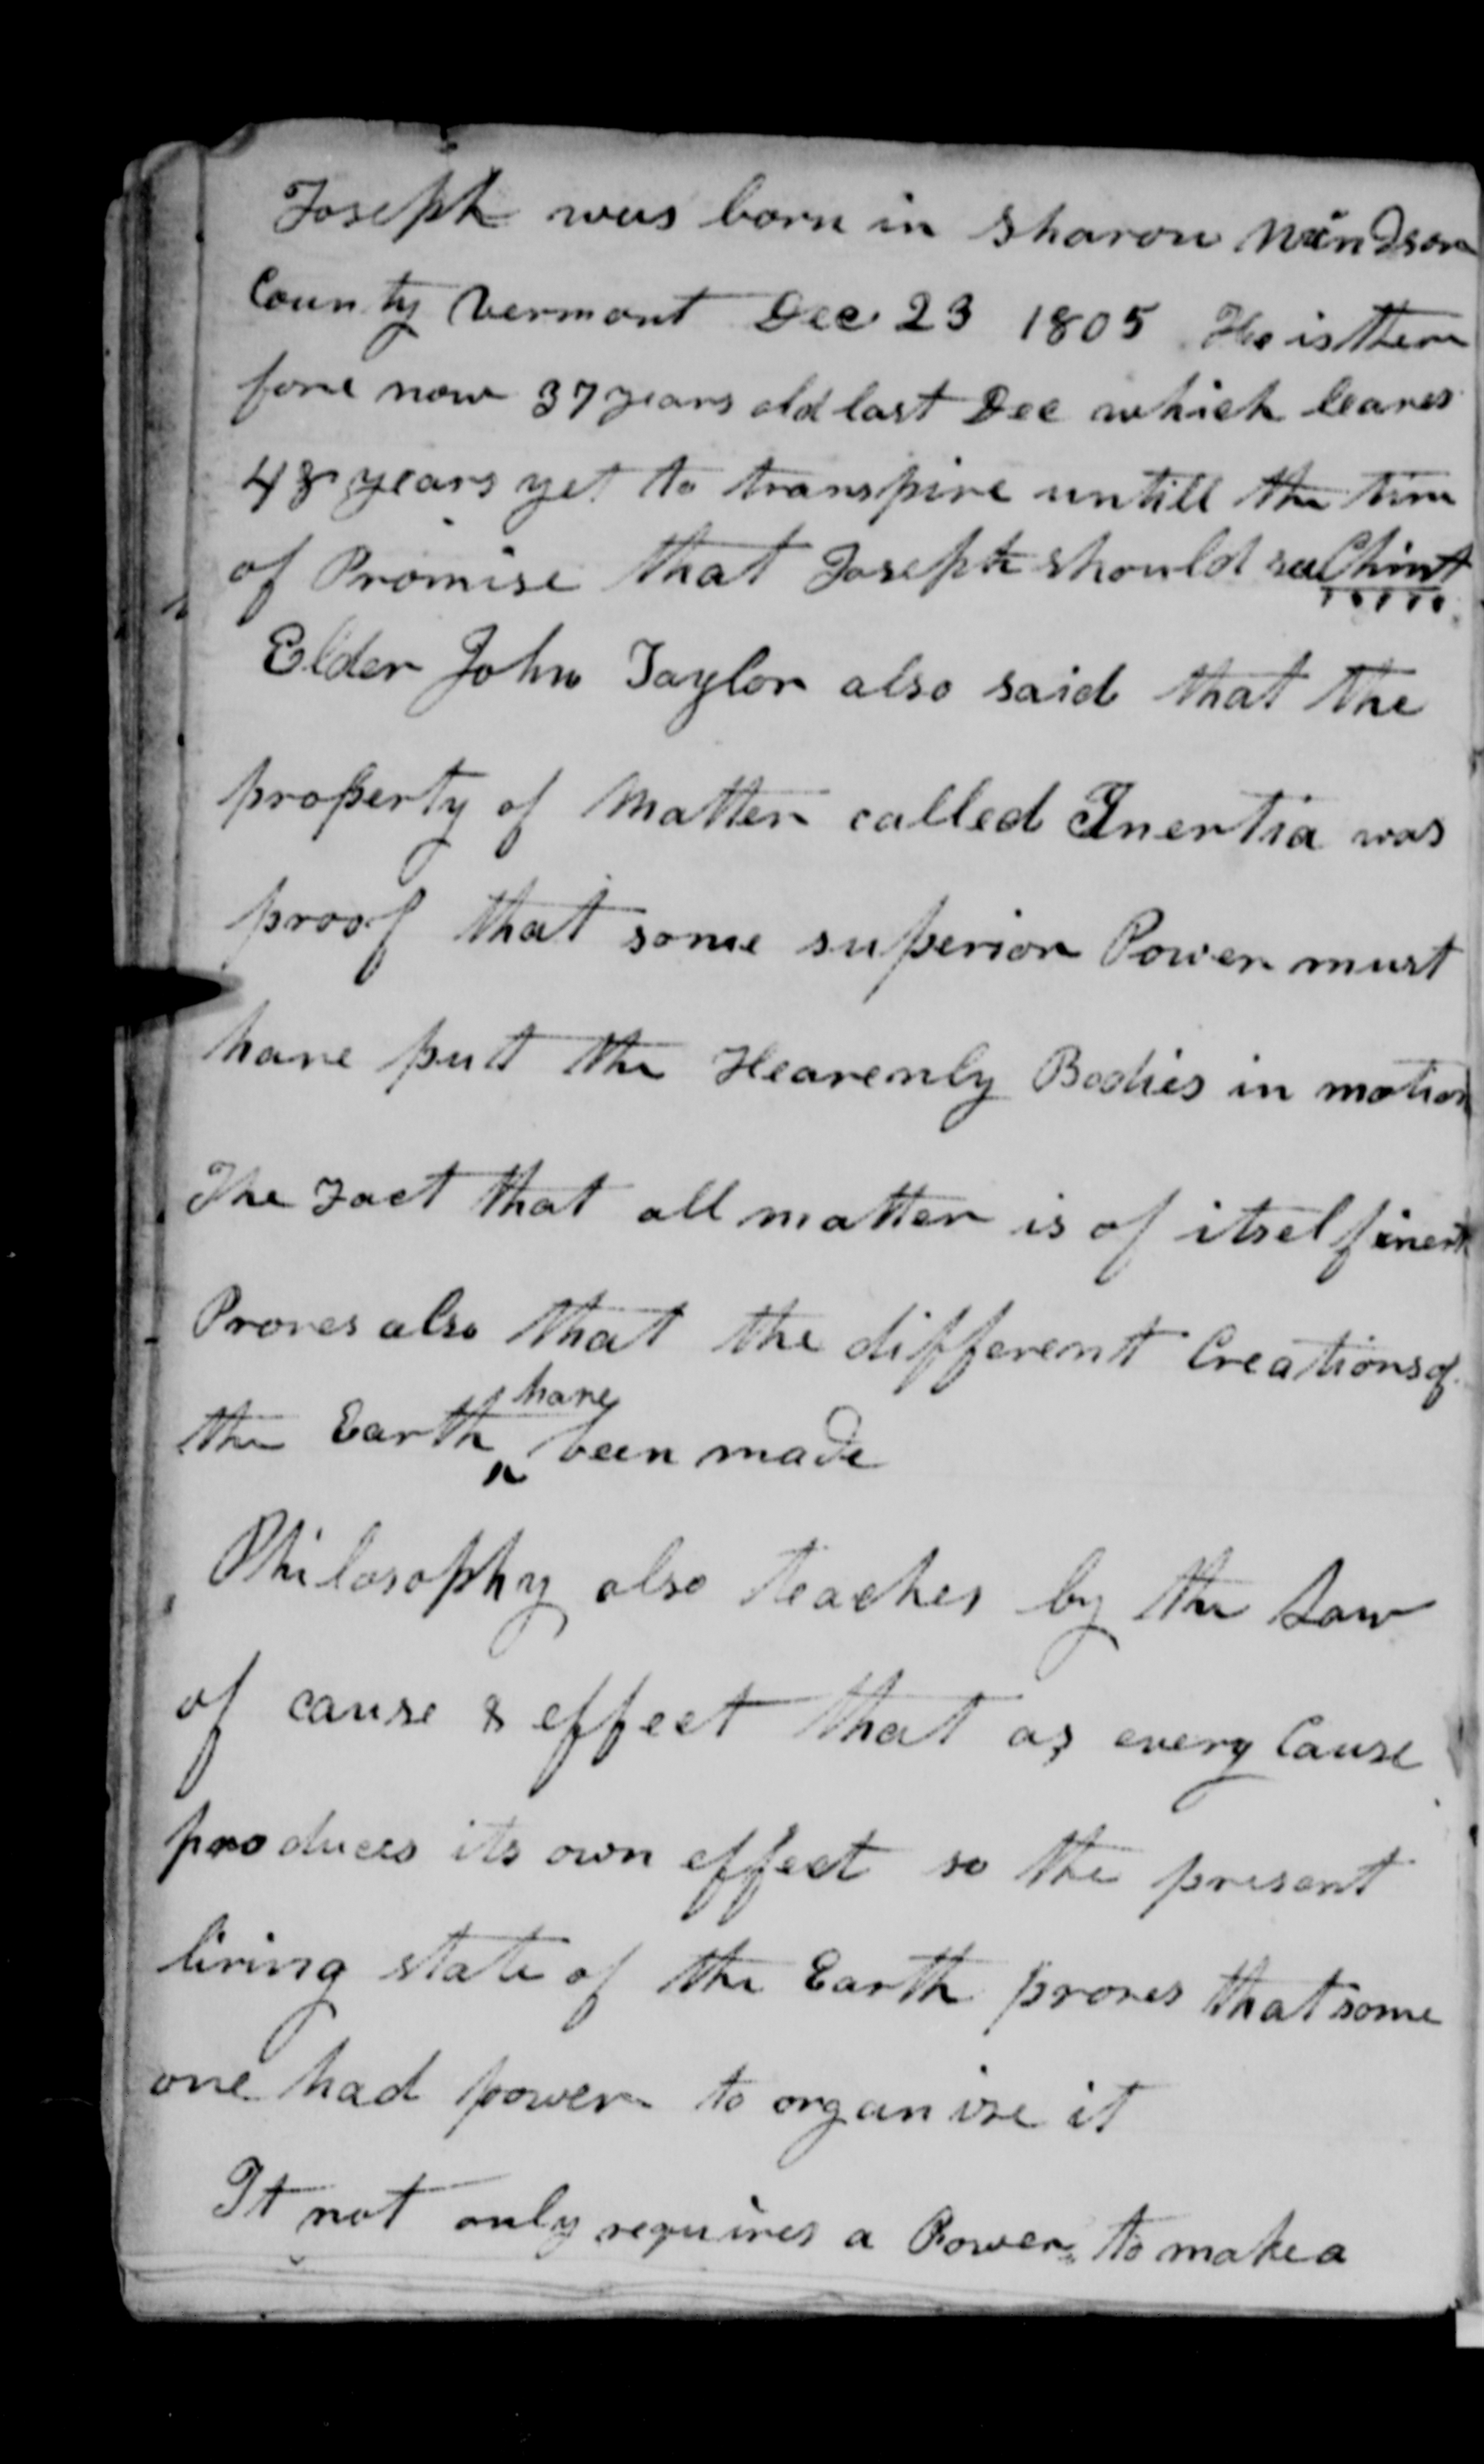 Joseph was born in Sharon Windsor
County Vermont Dec 23 1805 He is there
fore now 37 years old last Dec which leaves
48 years yet to transpire untill the time
of Promise that Joseph should see Christ
Elder John Taylor also said that the
property of Matter called Inertia was
proof that some superior Power must
have putt the Heavenly Bodies in motion
The Fact that all matter is of itself inert
Proves also that the different Creations of
the Earth have been made
Philosophy also teaches by the Law
of cause & effect that as every Cause
produces its own effect so the present
living state of the Earth proves that some
one had power to organise it
It not only requires a Power to make a